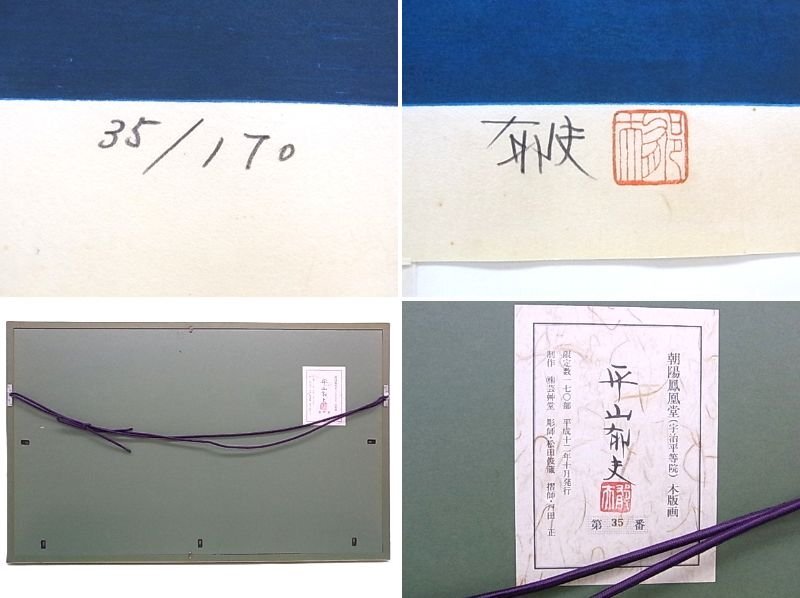 35/170
郁夫
朝陽鳳凰堂（宇治平等院）木版画
平山郁夫
第 35 番
限定数一七〇部 平成十二年十月発行
制作 ㈱芸艸堂 彫師・松田俊蔵 摺師・河田 正